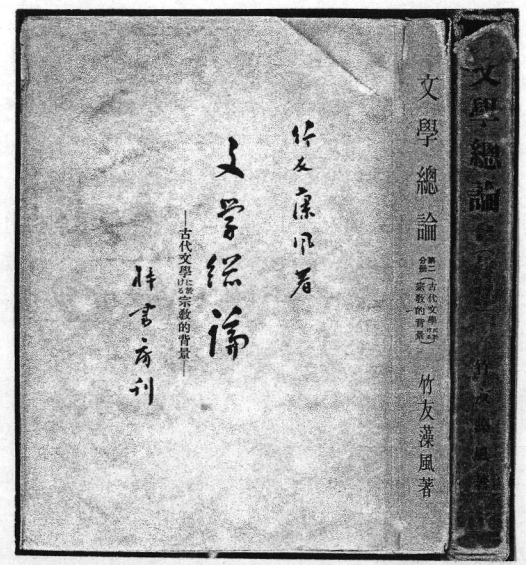 竹友藻風著
文学総論
―古代文學に於ける宗教的背景―
梓書房刊
文學總論 第二分册(古代文學に於ける宗教的背景) 竹友藻風著
文學總論
竹友藻風著